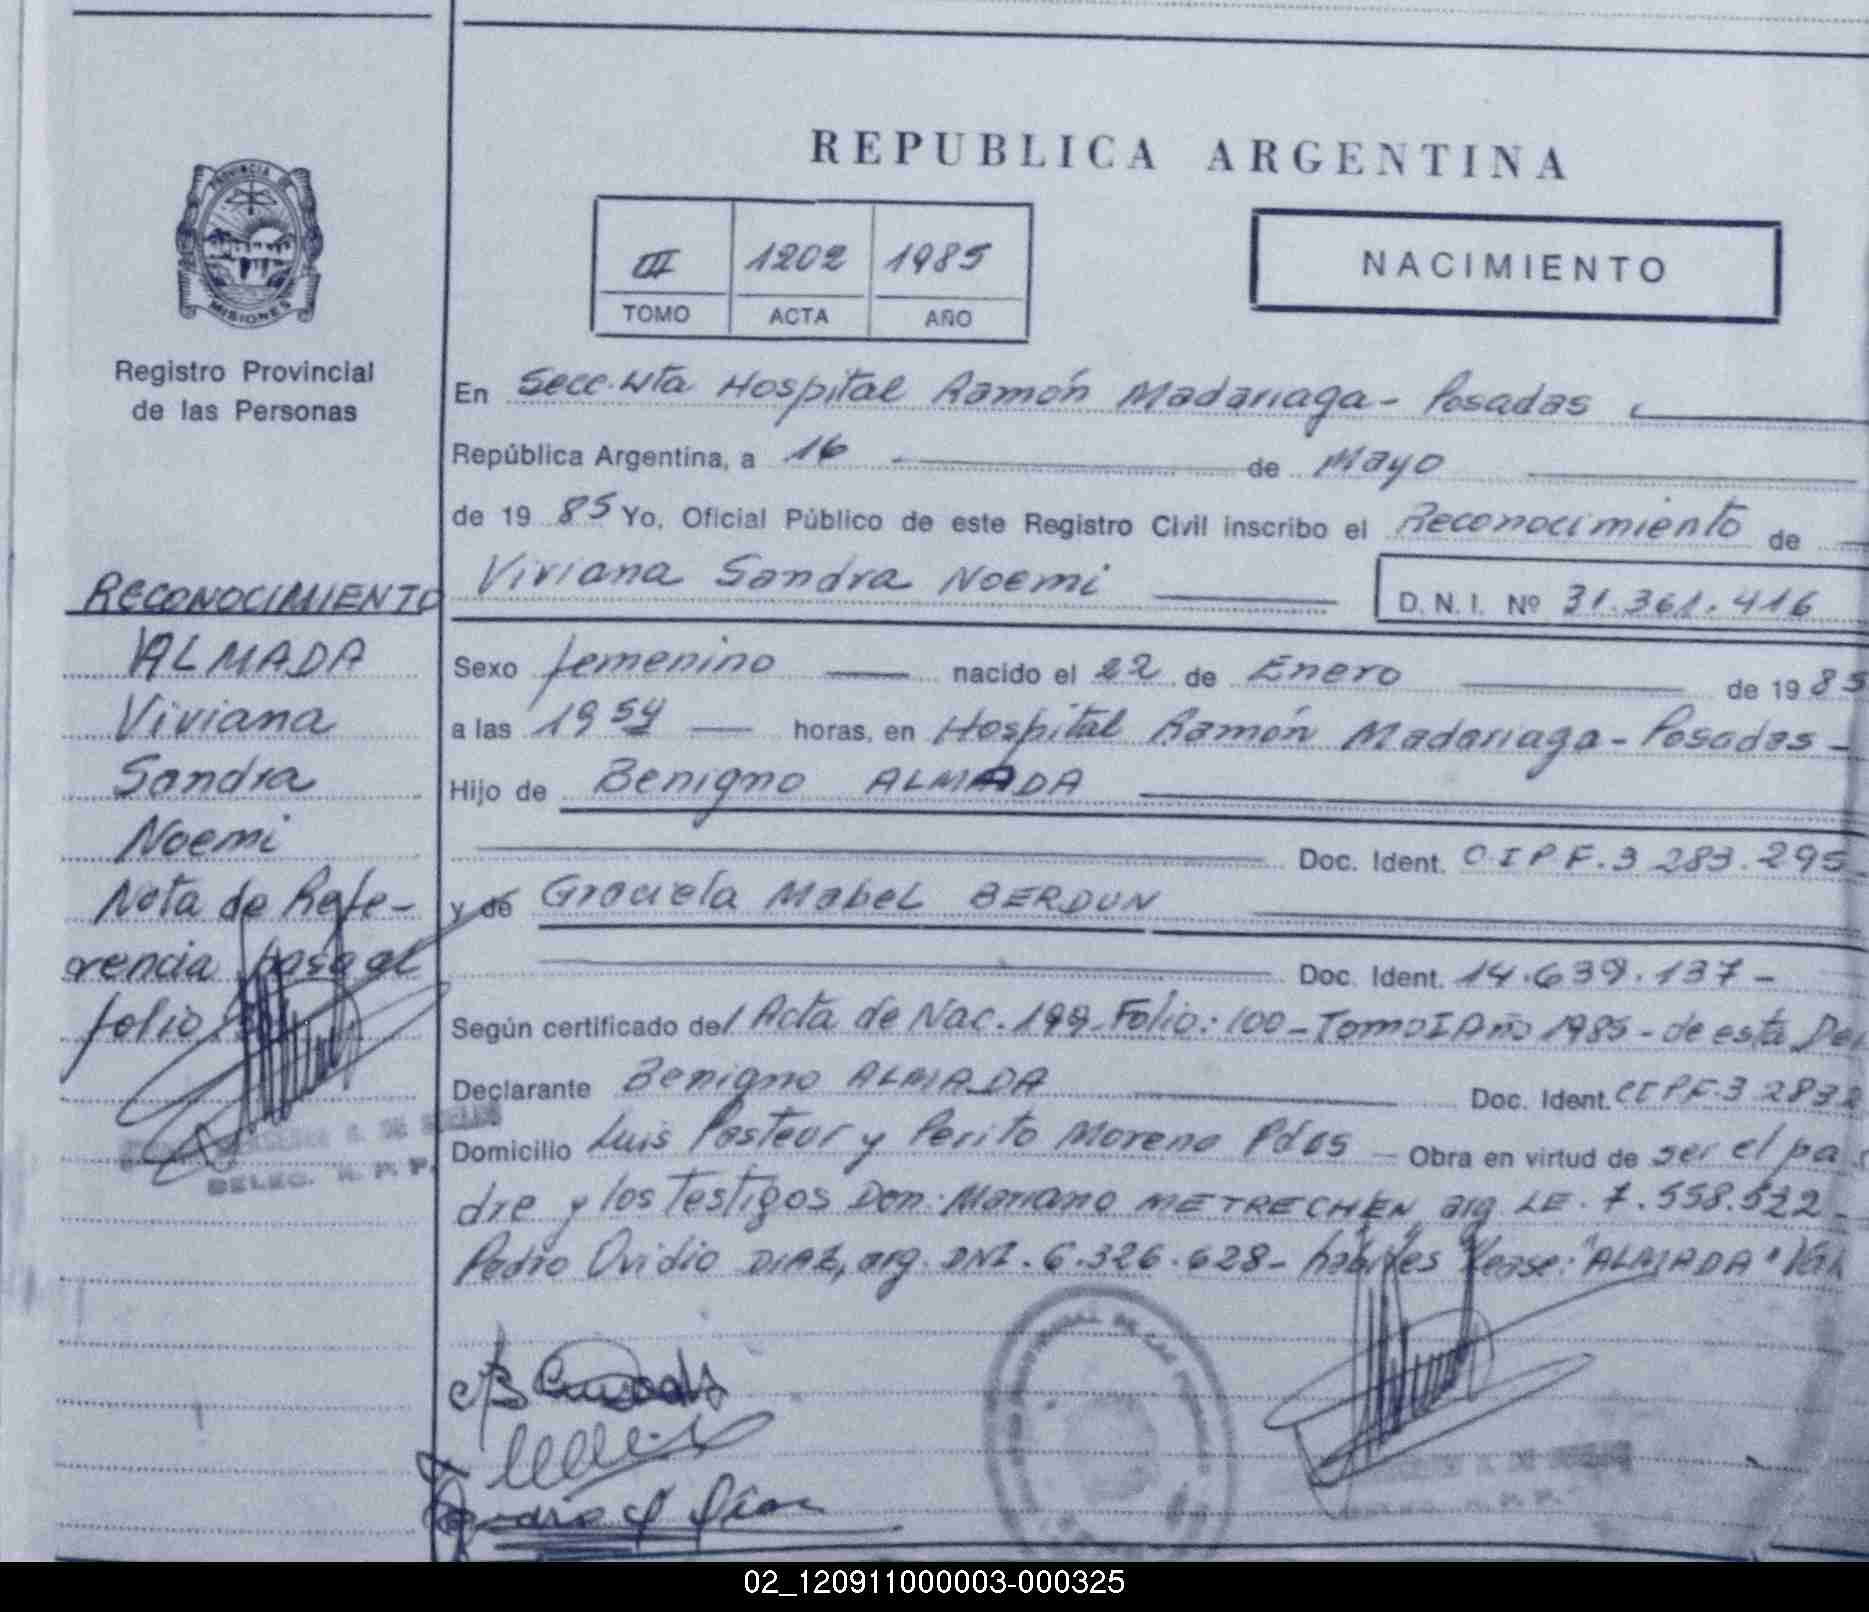 REPUBLICA ARGENTINA
PROVINCIA DE
MISIONES
Registro Provincial
de las Personas
III 1202 1985
TOMO ACTA AÑO
NACIMIENTO
En Secc. 4ta Hospital Ramón Madariaga - Posadas
República Argentina, a 16 de Mayo
de 19 85 Yo, Oficial Público de este Registro Civil inscribo el Reconocimiento de
Viviana Sandra Noemi D.N.I. Nº 31.361.416
Sexo femenino nacido el 22 de Enero de 19 85
a las 19 54 horas, en Hospital Ramón Madariaga - Posadas -
Hijo de Benigno ALMADA
Doc. Ident. C.I.P.F. 3 283.295
y de Graciela Mabel BERDUN
Doc. Ident. 14.639.137 -
Según certificado del Acta de Nac. 199 - Folio: 100 - Tomo I Año 1985 - de esta Del
Declarante Benigno ALMADA Doc. Ident. CIPF. 3 2832
Domicilio Luis Pasteur y Perito Moreno Pdas - Obra en virtud de ser el pa
dre y los testigos Don: Mariano METRECHEN, arg. LE. 7.558.522 -
Pedro Ovidio DIAZ, arg. DNI. 6.326.628 - hábiles léase: "ALMADA" Vale
RECONOCIMIENTO
ALMADA
Viviana
Sandra
Noemi
Nota de Refe-
rencia pasa al
folio
DELEG. R. P. P.
02_120911000003-000325